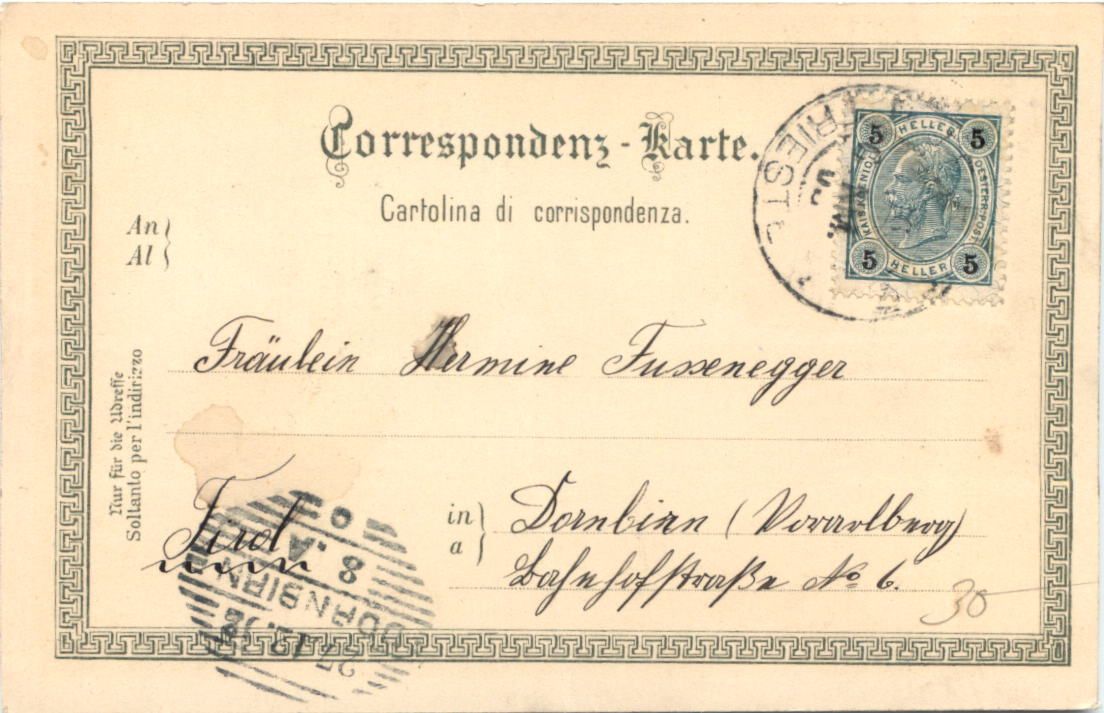 Correspondenz-Karte.
Cartolina di corrispondenza.
An
Al
TRIEST
5 HELLER 5
KAIS. KÖNIGL. OESTERR. POST
5 HELLER 5
Fräulein Hermine Fussenegger
Nur für die Adresse
Soltanto per l'indirizzo
Tirol
in
a
Dornbirn (Vorarlberg)
Bahnhofstraße No 6.
30
8.A
DORNBIRN
27.12.02